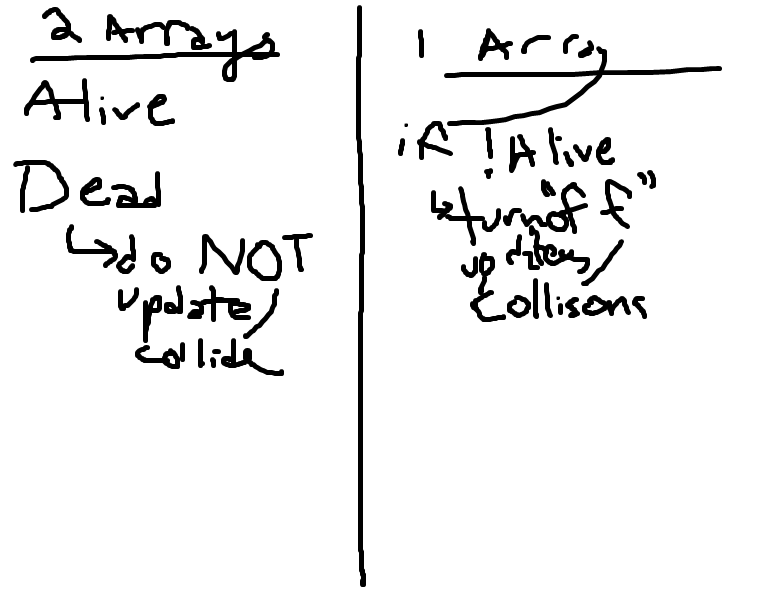 2 Arrays
Alive
Dead
↳do NOT
update/
collide
1 Array
if !Alive
↳turn "off"
updates/
Collisons